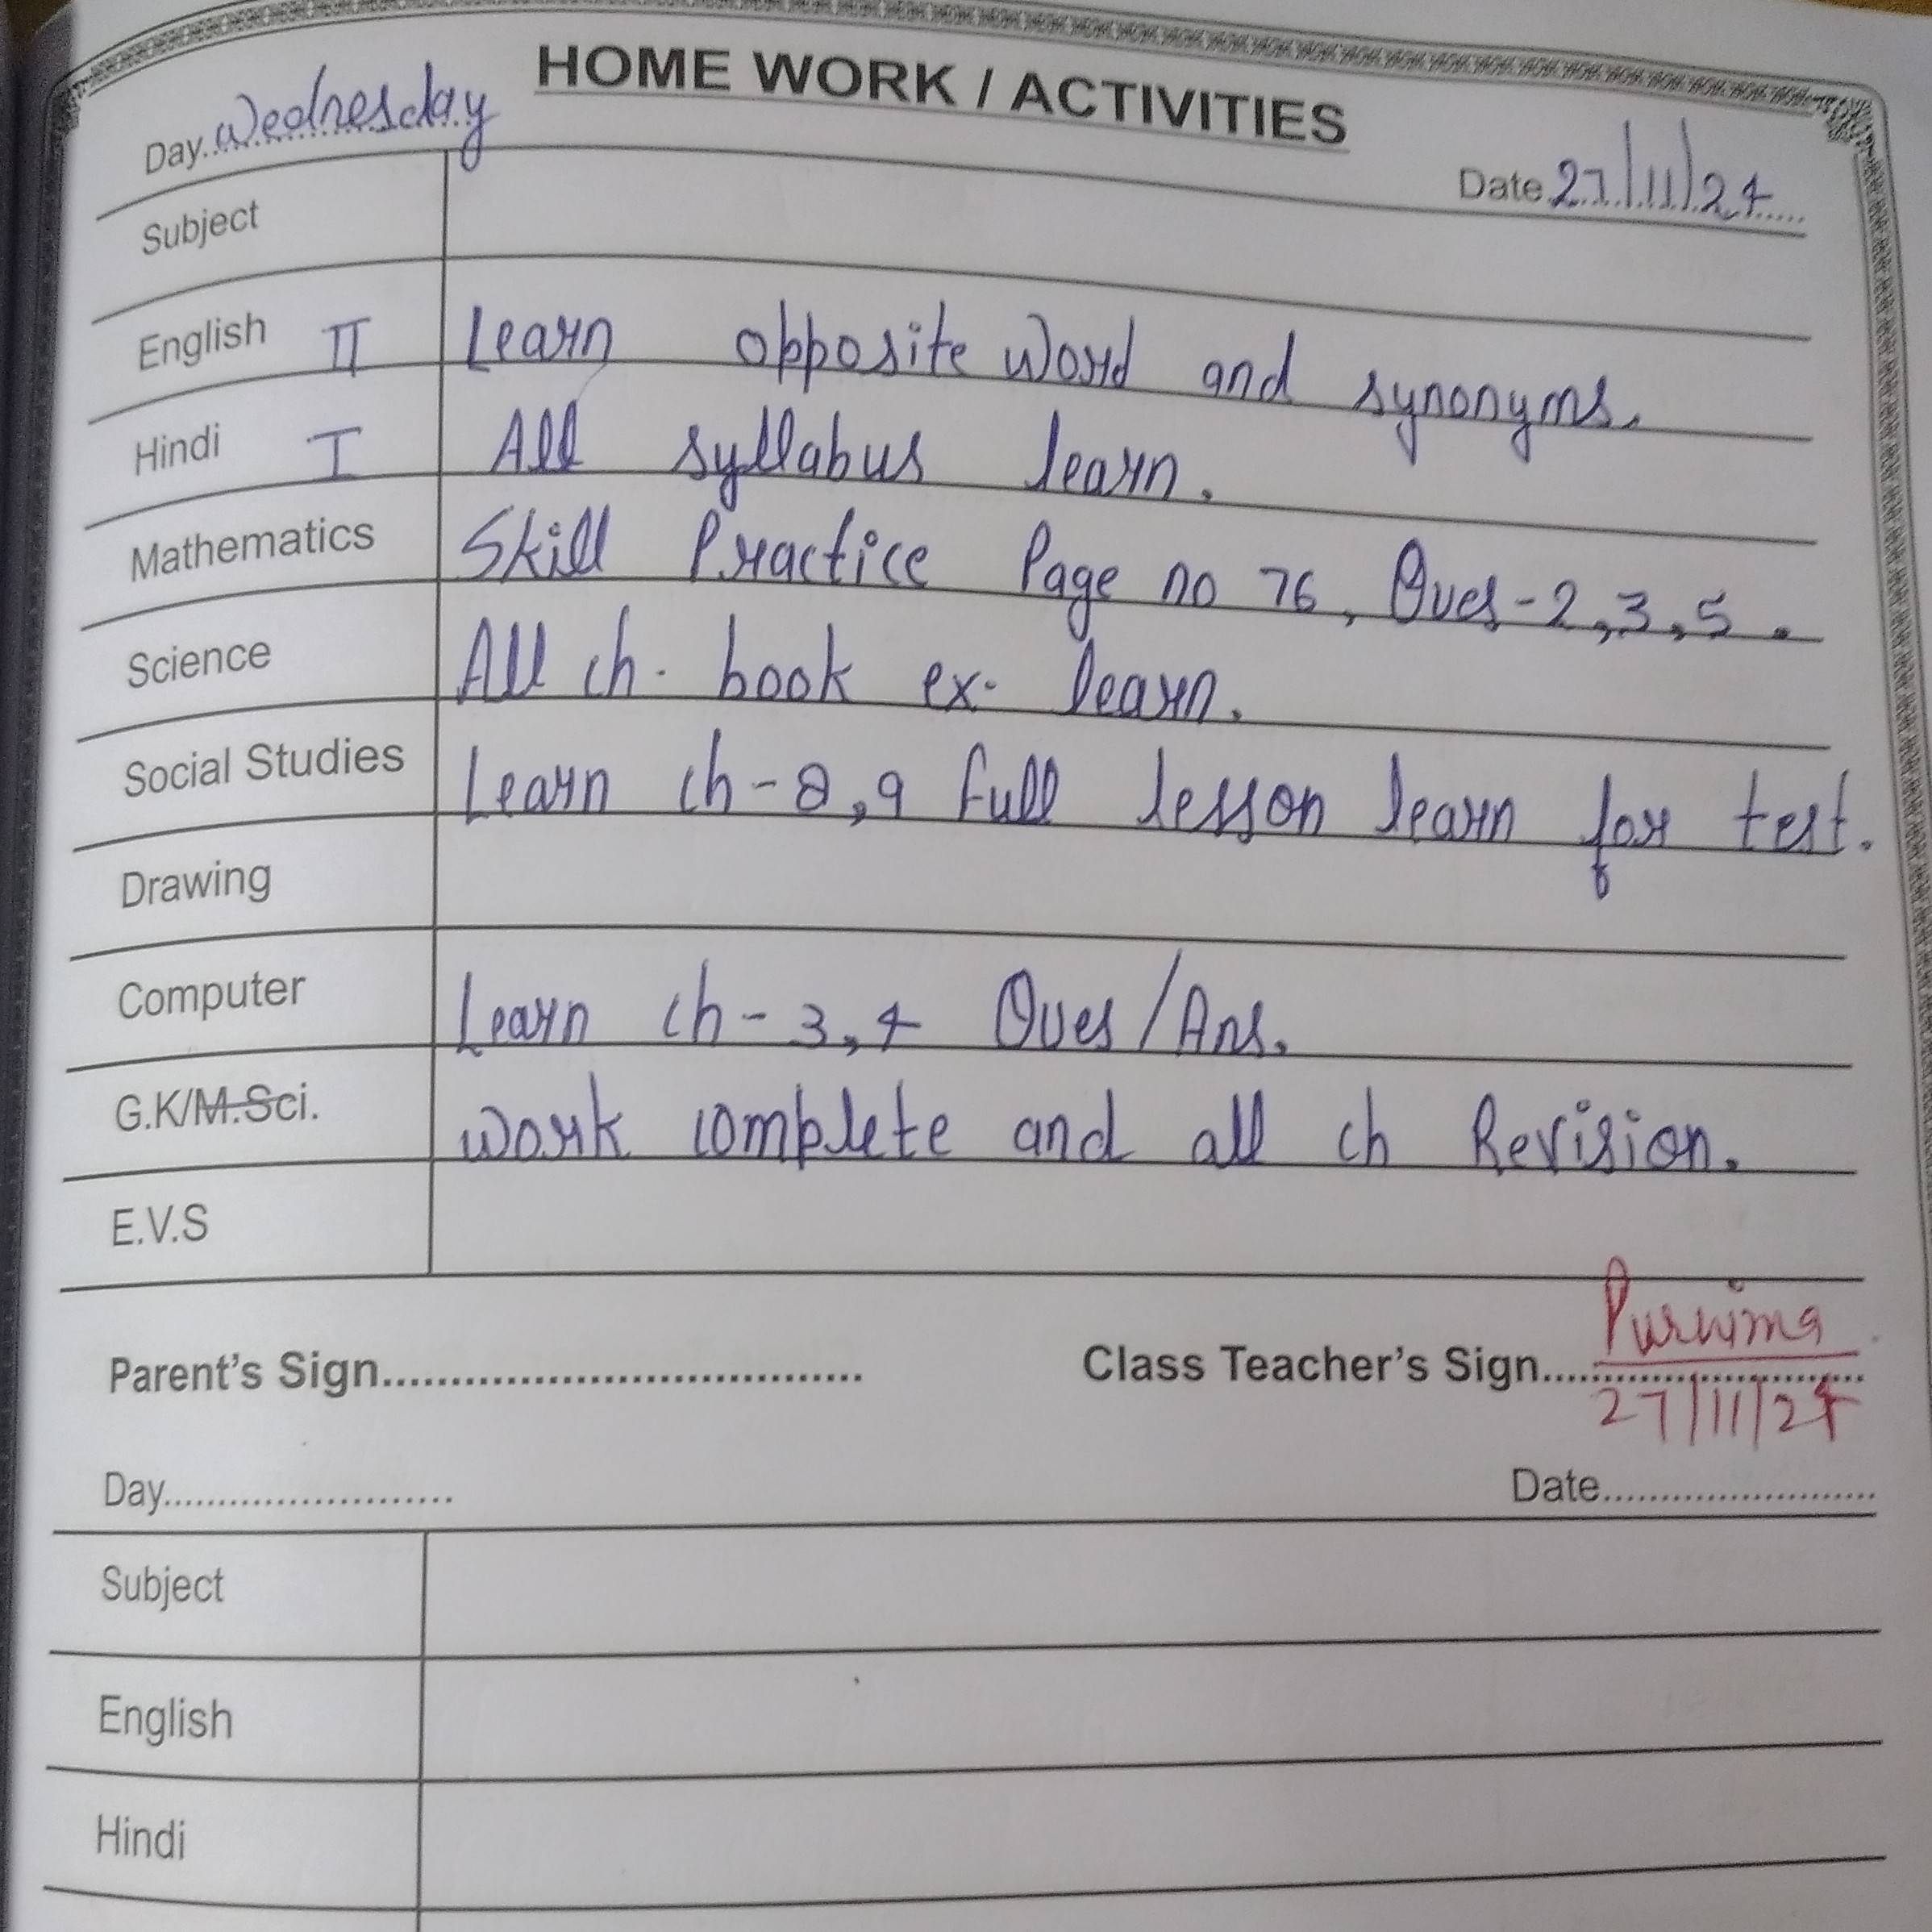 HOME WORK / ACTIVITIES
Day Wednesday
Date 27/11/24
Subject
English II Learn opposite word and synonyms.
Hindi I All syllabus learn.
Mathematics Skill Practice Page no 76, Ques-2,3,5.
Science All ch. book ex. learn.
Social Studies Learn ch-8,9 full lesson learn for test.
Drawing
Computer Learn ch-3,4 Ques/Ans.
G.K/M.Sci. work complete and all ch Revision.
E.V.S
Parent's Sign.................... Class Teacher's Sign.... Purnima
27/11/24
Day.................... Date....................
Subject
English
Hindi